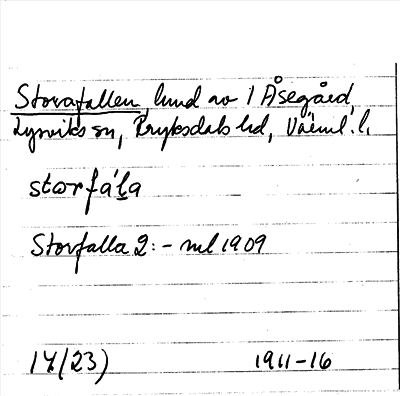 Storafallen, lund av 1 Åsegård,
Lysviks sn, Fryksdals hd, Värml. l.
storfåla
Storfalla 2: - ml 1909
17(23)
1911-16